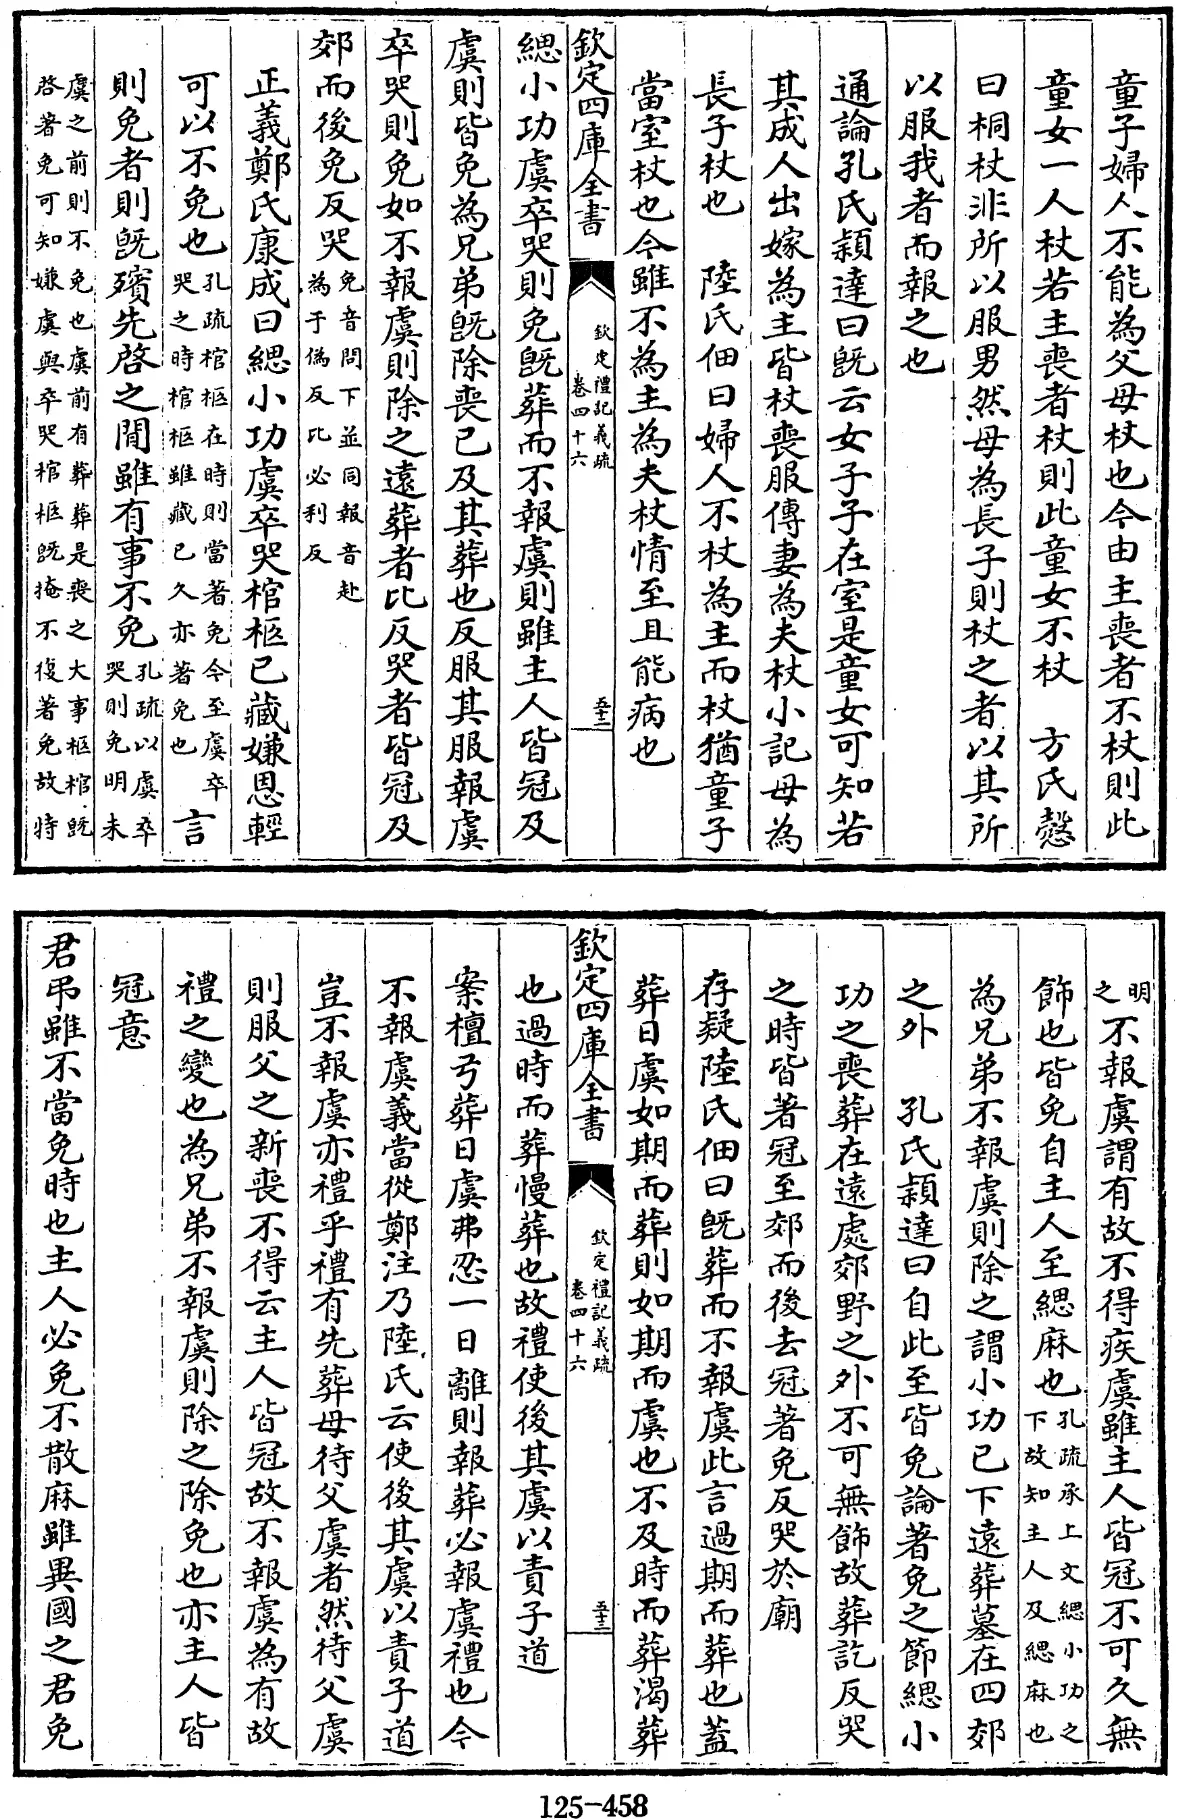 童子婦人不能為父母杖也今由主喪者不杖則此
童女一人杖若主喪者杖則此童女不杖　方氏慤
曰桐杖非所以服男然母為長子則杖之者以其所
以服我者而報之也
通論孔氏穎達曰既云女子子在室是童女可知若
其成人出嫁為主皆杖喪服傳妻為夫杖小記母為
長子杖也　陸氏佃曰婦人不杖為主而杖猶童子
當室杖也今雖不為主為夫杖情至且能病也
欽定四庫全書
欽定禮記義疏
卷四十六
五十二
緦小功虞卒哭則免既葬而不報虞則雖主人皆冠及
虞則皆免為兄弟既除喪已及其葬也反服其服報虞
卒哭則免如不報虞則除之遠葬者比反哭者皆冠及
郊而後免反哭免音問下並同報音赴
為于偽反比必利反
正義鄭氏康成曰緦小功虞卒哭棺柩已藏嫌恩輕
可以不免也孔疏棺柩在時則當著免今至虞卒
哭之時棺柩雖藏已久亦著免也言
則免者則既殯先啓之間雖有事不免孔疏以虞卒
哭則免明未
虞之前則不免也虞前有葬葬是喪之大事柩棺既
啓著免可知嫌虞與卒哭棺柩既掩不復著免故特
明
之不報虞謂有故不得疾虞雖主人皆冠不可久無
飾也皆免自主人至緦麻也孔疏承上文緦小功之
下故知主人及緦麻也
為兄弟不報虞則除之謂小功已下遠葬墓在四郊
之外　孔氏穎達曰自此至皆免論著免之節緦小
功之喪葬在遠處郊野之外不可無飾故葬訖反哭
之時皆著冠至郊而後去冠著免反哭於廟
存疑陸氏佃曰既葬而不報虞此言過期而葬也蓋
葬日虞如期而葬則如期而虞也不及時而葬渴葬
欽定四庫全書
欽定禮記義疏
卷四十六
五十三
也過時而葬慢葬也故禮使後其虞以責子道
案檀弓葬日虞弗忍一日離則報葬必報虞禮也今
不報虞義當從鄭注乃陸氏云使後其虞以責子道
豈不報虞亦禮乎禮有先葬母待父虞者然待父虞
則服父之新喪不得云主人皆冠故不報虞為有故
禮之變也為兄弟不報虞則除之除免也亦主人皆
冠意
君弔雖不當免時也主人必免不散麻雖異國之君免
125-458